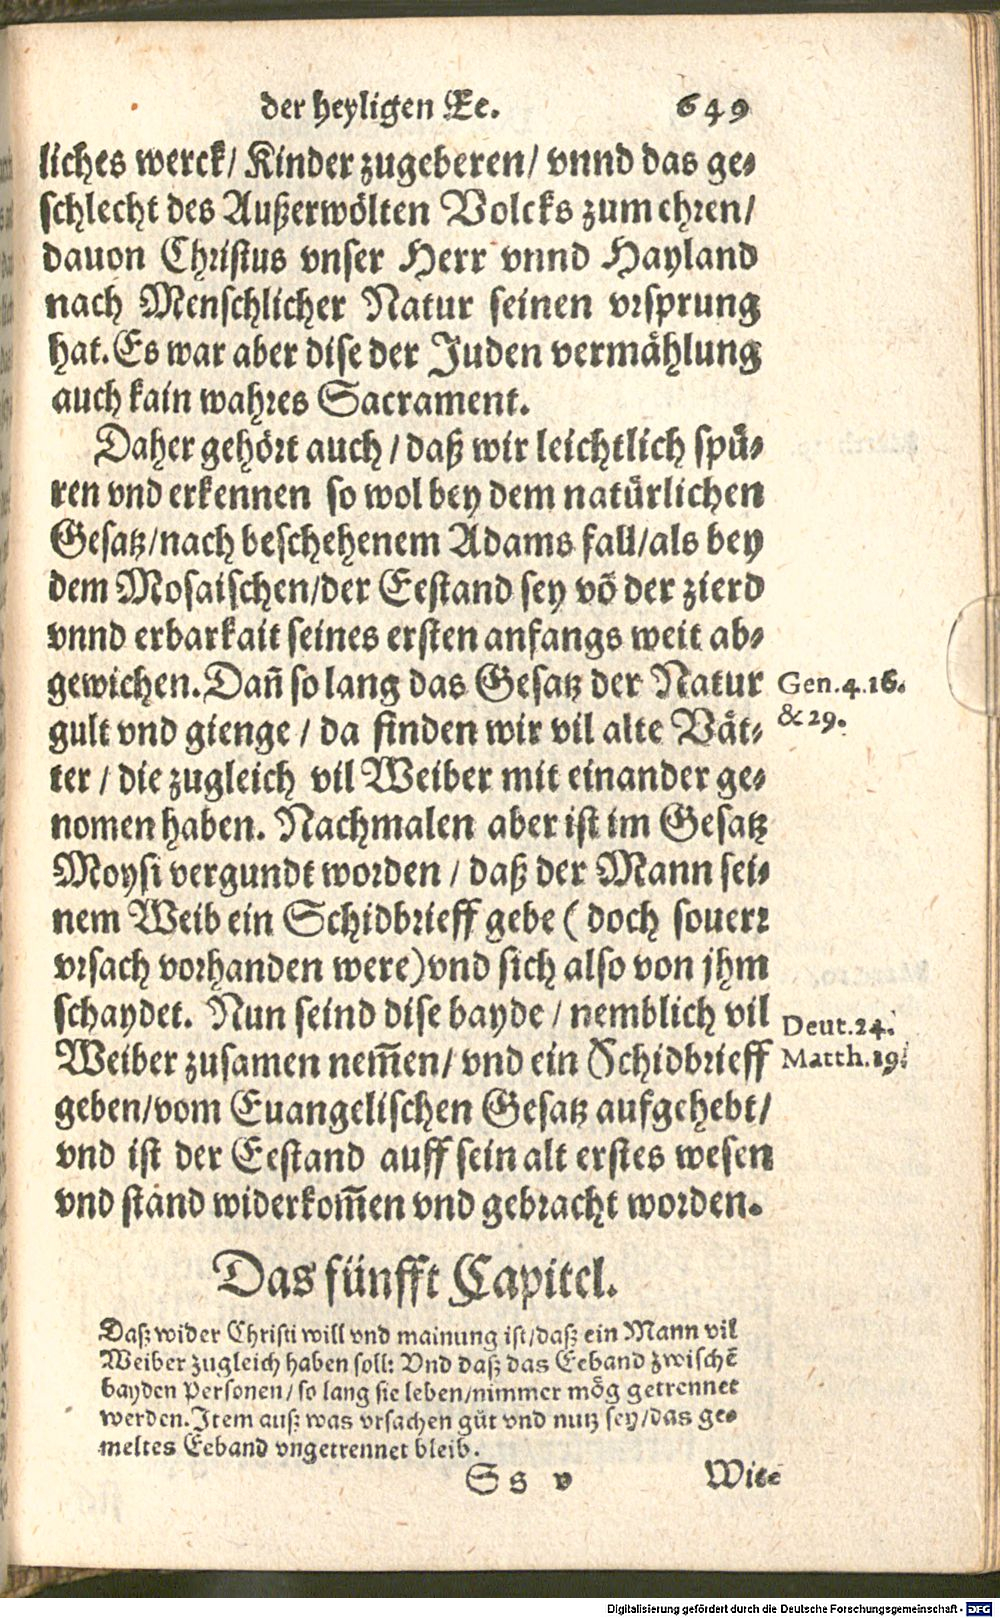 der heyligen Ee. 649
liches werck/ Kinder zugeberen/ vnnd das ge⸗
schlecht des Außerwölten Volcks zum ehren/
dauon Christus vnser Herr vnnd Hayland
nach Menschlicher Natur seinen vrsprung
hat. Es war aber dise der Juden vermählung
auch kain wahres Sacrament.
Daher gehört auch/ daß wir leichtlich spü⸗
ren vnd erkennen so wol bey dem natürlichen
Gesatz/nach beschehenem Adams fall/als bey
dem Mosaischen/der Eestand sey võ der zierd
vnnd erbarkait seines ersten anfangs weit ab⸗
gewichen. Dañ so lang das Gesatz der Natur
Gen.4.16.
gult vnd gienge/ da finden wir vil alte Vät⸗
& 29.
ter/ die zugleich vil Weiber mit einander ge⸗
nomen haben. Nachmalen aber ist im Gesatz
Moysi vergundt worden/ daß der Mann sei⸗
nem Weib ein Schidbrieff gebe (doch souerr
vrsach vorhanden were) vnd sich also von jhm
schaydet. Nun seind dise bayde/ nemblich vil
Deut.24.
Weiber zusamen nem̃en/ vnd ein Schidbrieff
Matth.19.
geben/vom Euangelischen Gesatz aufgehebt/
vnd ist der Eestand auff sein alt erstes wesen
vnd stand widerkom̃en vnd gebracht worden.
Das fünfft Capitel.
Daß wider Christi will vnd mainung ist/daß ein Mann vil
Weiber zugleich haben soll: Vnd daß das Eeband zwischẽ
bayden Personen/ so lang sie leben/nimmer mög getrennet
werden. Item auß was vrsachen gůt vnd nutz sey/das ge⸗
meltes Eeband vngetrennet bleib.
S s v Wie
Digitalisierung gefördert durch die Deutsche Forschungsgemeinschaft - DFG